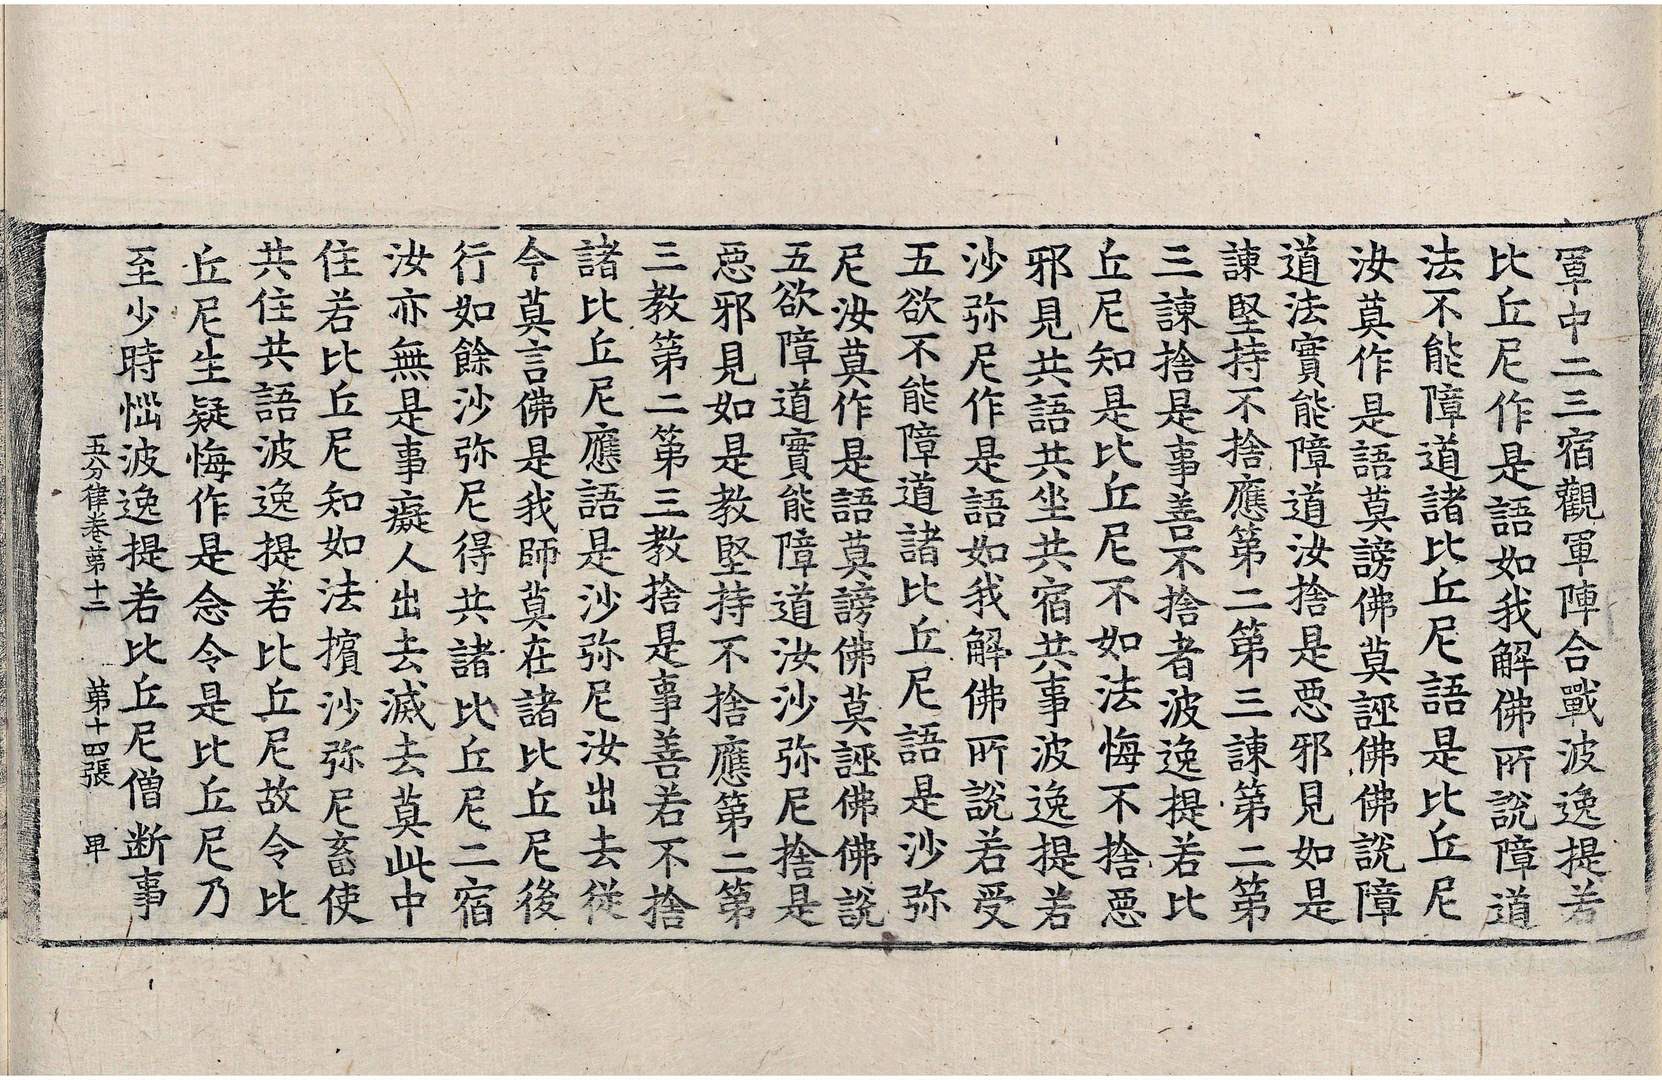 軍中二三宿觀軍陣合戰波逸提若
比丘尼作是語如我解佛所說障道
法不能障道諸比丘尼語是比丘尼
汝莫作是語莫謗佛莫誣佛佛說障
道法實能障道汝捨是惡邪見如是
諫堅持不捨應第二第三諫第二第
三諫捨是事善不捨者波逸提若比
丘尼知是比丘尼不如法悔不捨惡
邪見共語共坐共宿共事波逸提若
沙弥尼作是語如我解佛所說若受
五欲不能障道諸比丘尼語是沙弥
尼汝莫作是語莫謗佛莫誣佛佛說
五欲障道實能障道汝沙弥尼捨是
惡邪見如是教堅持不捨應第二第
三教第二第三教捨是事善若不捨
諸比丘尼應語是沙弥尼汝出去從
今莫言佛是我師莫在諸比丘尼後
行如餘沙弥尼得共諸比丘尼二宿
汝亦無是事癡人出去滅去莫此中
住若比丘尼知如法擯沙弥尼畜使
共住共語波逸提若比丘尼故令比
丘尼生疑悔作是念令是比丘尼乃
至少時惱波逸提若比丘尼僧斷事
五分律卷第十二 第十四張 甲